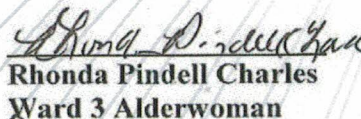 Rhonda Pindell Char
Rhonda Pindell Charles
Ward 3 Alderwoman